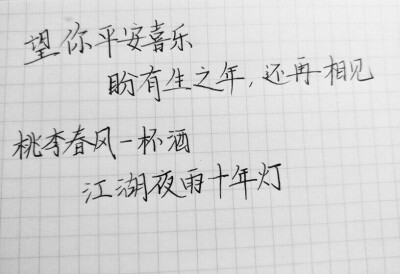 望你平安喜乐
盼有生之年,还再相见
桃李春风一杯酒
江湖夜雨十年灯